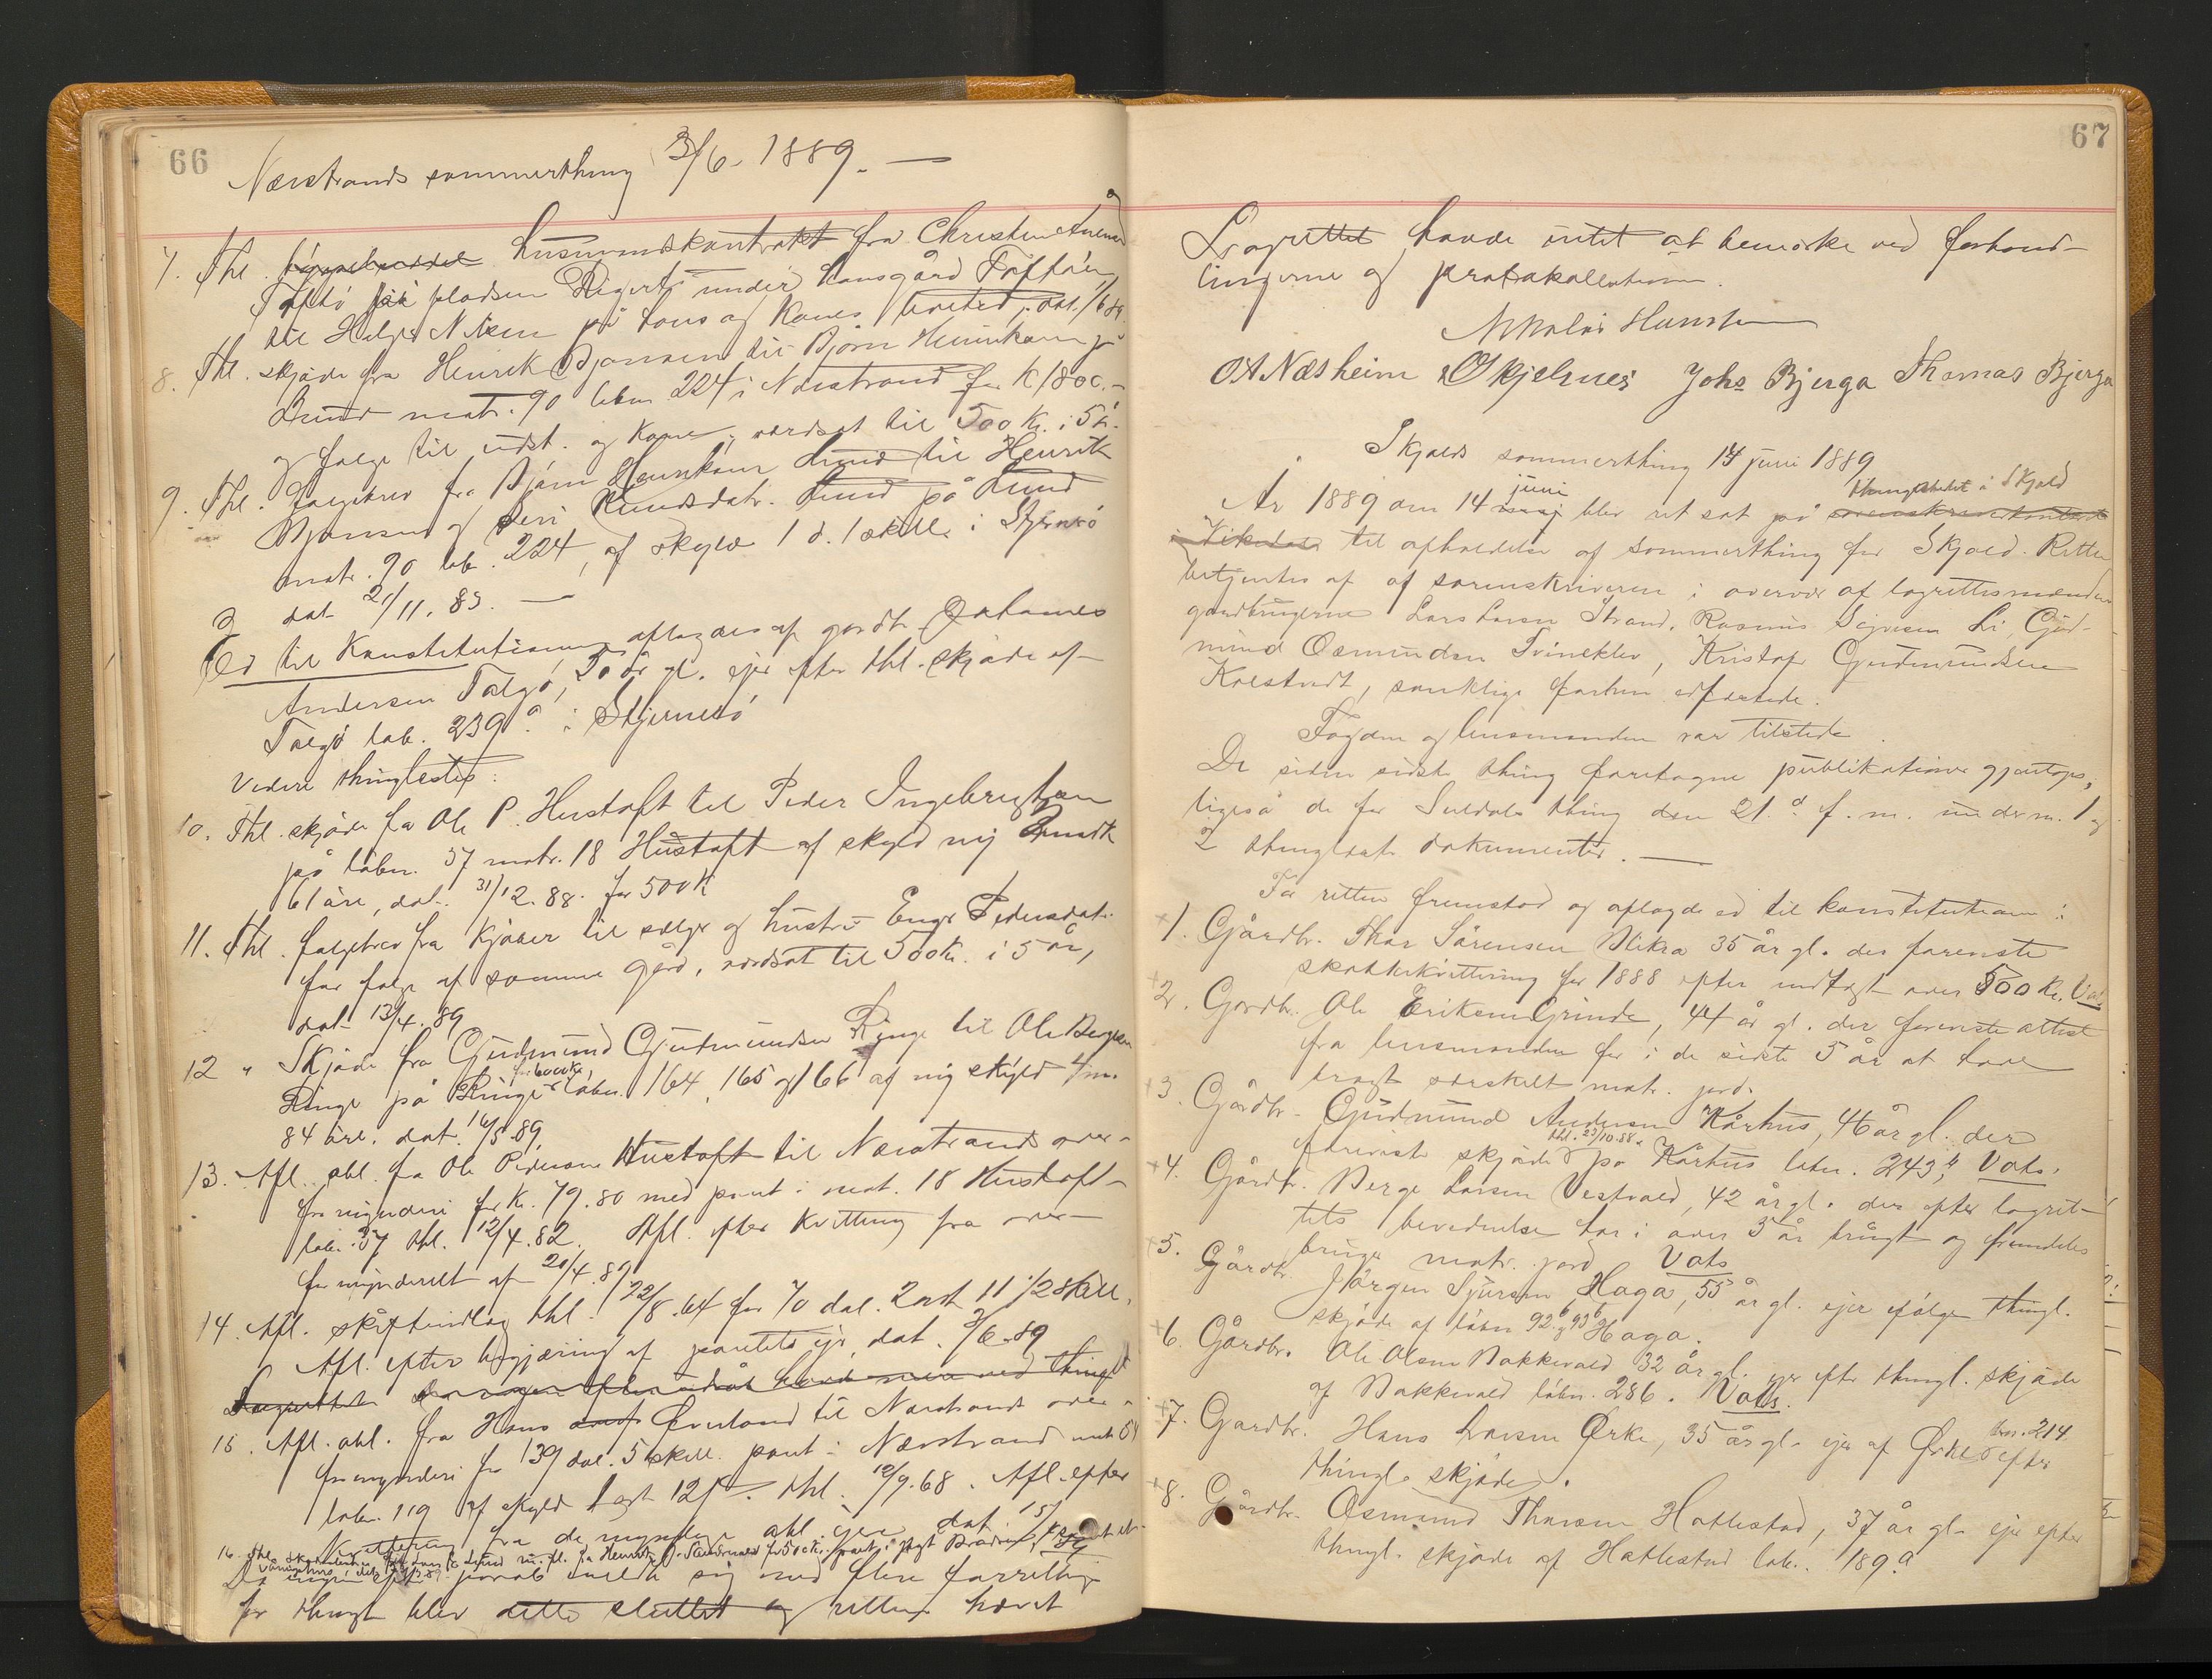 66
Nærstrands sommerthing 3/6 1889.
7. Thl. husmandskontrakt fra Christen
Toftø på pladsen under hansgård Toftøen
til Helge på hans og Kones levetid, dat. 1/6 89.
8. Thl. skjøde fra Henrik Bjønsen til Bjørn Henriksen på
Lund matr. 90 løbn. 224 i Nærstrand for K 1800.-
og folge til udst. og Kone, værdsat til 500 Kr. i 5 år.
9. Thl. folgebrev fra Bjørn Henriksen Lund til Henrik
Bjønsen og Seri Knudsdatr. Lund på Lund
matr. 90 løb. 224, af skyld 1 d. 1 skill. i Stjernerø
dat 21/11. 83.
Ed til Konstitutionen aflagdes af gårdbr. Johannes
Andersen Talgø, 30 år gl. ejer efter thl. skjøde af
Talgø løb. 239 a. i Stjernerø
Videre thinglæstes:
10. Thl. skjøde fra Ole P. Hustoft til Peder Ingebrigtsen
på løbn. 37 matr. 18 Hustoft af skyld ny 2 mark
61 øre, dat. 31/12. 88. for 500 K
11. Thl. folgebrev fra Kjøber til sælger og hustru Engr Pedersdatr.
for folge af samme gård, værdsat til 500 Kr. i 5 år,
dat 13/4. 89
12 " Skjøde fra Gudmund Gudmundsen Ringe til Ole Bergesen
for 6000 Kr.
Ringe på Ringe løbn. 164, 165 og 166 af ny skyld 4 m.
84 øre. dat. 16/5 89.
13. Afl. obl. fra Ole Pedersen Hustoft til Nærstrands over-
formynderi for Kr. 79.80 med pant i mat. 18 Hustoft
løbn. 37 thl. 12/4. 82. Afl. efter Kvittering fra over-
formynderiet af 20/4. 89
14. Afl. skifteudlæg thl. 22/8. 64 for 70 dal. 2 ort 11 1/2 skill.
Afl. efter begjæring af pantets ejer, dat. 3/6. 89
Lagrettet
15. Afl. obl. fra Hans Øverland til Nærstrands over-
formynderi for 139 dal. 5 skill. pant i Nærstrand
løbn. 119 af skyld 1 ort 12 thl. 10/9. 68. Afl. efter
Kvittering fra de myndige dat. 15/
16. Thl.
Da ingen meldte sig med flere forretninger
for thinget blev dette sluttet og retten hævet
67
Lagrettet havde intet at bemærke ved forhand-
lingerne og protokollationen.
Nikolai Hansten
O A Næsheim O Kjelnes Johs Bjerga Thomas Bjerga
Skjolds sommerthing 14 juni 1889
juni thingstedet i Skjold
År 1889 den 14 maj blev ret sat på sorenskriverkontoret
i Vikedal til afholdelse af sommerthing for Skjold. Retten
betjentes af af sorenskriveren i overvær af lagrettesmænden
gårdbrugerne Lars Larsen Strand, Rasmus Li, Gud-
mund Osmundsen Tvineklev, Kristofer Gudmundsen
Kolstvedt, samtlige forhen edfæstede.
Fogden og lensmanden var tilstede.
De siden sidste thing foretagne publikationer gjentoges,
ligeså de for Suldals thing den 21. d. f. m. under n. 1 og
2 thinglæste dokumenter.
For retten fremstod og aflagde ed til konstitutionen:
1. Gårdbr. Skar Sørensen Blikra 35 år gl. der foreviste
skattekvittering for 1888 efter indtægt over 500 Kr. Vats
2. Gårdbr. Ole Eriksen Grinde, 44 år gl. der foreviste attest
fra lensmanden for i de sidste 5 år at have
brugt særskilt matr. jord.
3. Gårdbr. Gudmund Andersen Kårhus, 46 år gl. der
thl. 23/10. 88.
foreviste skjøde på Kårhus løbn. 243, Vats.
4. Gårdbr. Berge Larsen Vestvold, 42 år gl. der efter lagret-
tets bevidnelse har i over 5 år brugt og fremdeles
bruger matr. jord Vats
5. Gårdbr. Jørgen Sjursen Haga, 55 år gl. ejer ifølge thingl.
skjøde af løbn. 92 b og 93 b Haga.
6. Gårdbr. Ole Olsen Bakkevold 32 år gl. ejer efter thingl. skjøde
af Bakkevold løbn. 286. Vats.
7. Gårdbr. Hans Larsen Ørke, 35 år gl. ejer af Ørke efter
løbn. 214
thingl. skjøde.
8. Gårdbr. Osmund Thorsen Hatlestad, 37 år gl. ejer efter
thingl. skjøde af Hatlestad løb. 189 a